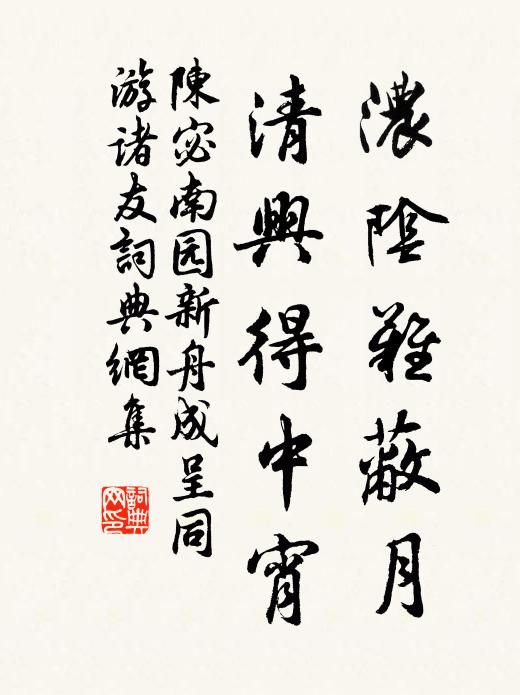 濃陰難蔽月
清興得中宵
陳宓南园新舟成呈同
游诸友詞典網集
詞典
网印